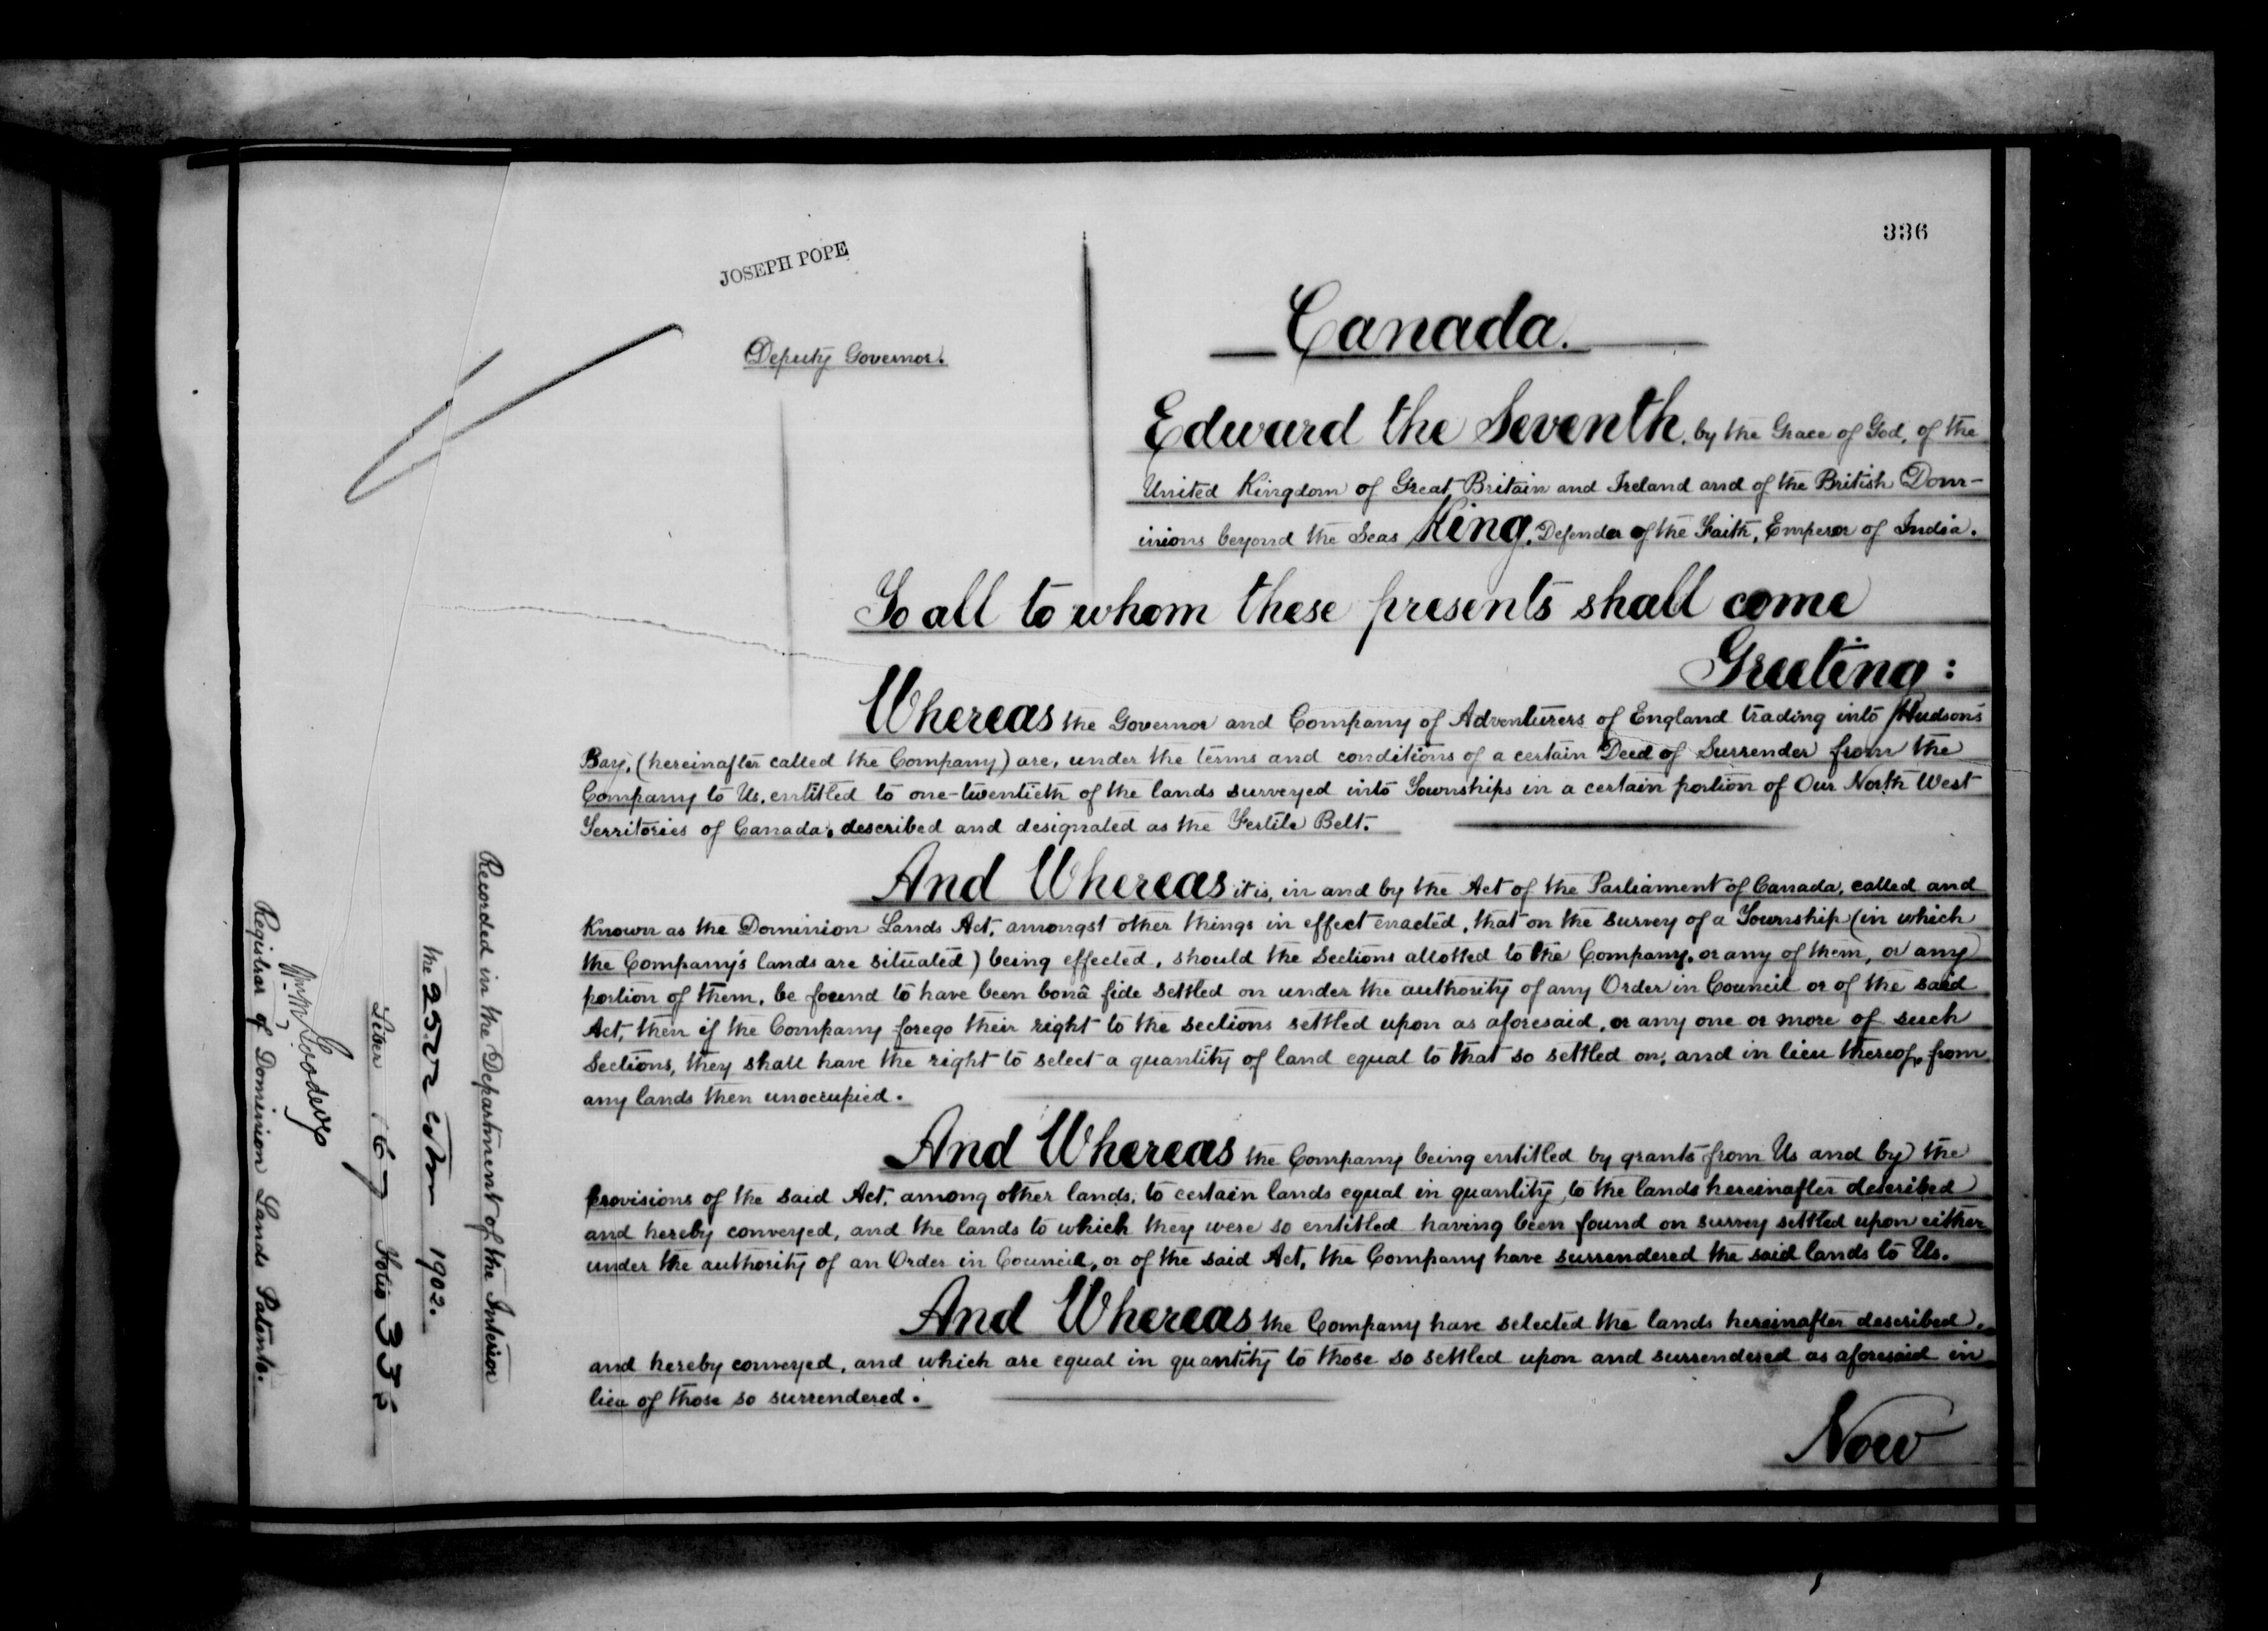 336
JOSEPH POPE
Deputy Governor.
Canada.
Edward the Seventh, by the Grace of God, of the
United Kingdom of Great Britain and Ireland and of the British Dom-
inions beyond the Seas King, Defender of the Faith, Emperor of India.
To all to whom these presents shall come
Greeting:
Whereas the Governor and Company of Adventurers of England trading into Hudson's
Bay, (hereinafter called the Company) are, under the terms and conditions of a certain Deed of Surrender from the
Company to Us, entitled to one-twentieth of the lands surveyed into Townships in a certain portion of Our North West
Territories of Canada, described and designated as the Fertile Belt.
And Whereas it is, in and by the Act of the Parliament of Canada, called and
known as the Dominion Lands Act, amongst other things in effect enacted, that on the survey of a Township (in which
the Company's lands are situated) being effected, should the Sections allotted to the Company, or any of them, or any
portion of them, be found to have been bonâ fide settled on under the authority of any Order in Council or of the said
Act, then if the Company forego their right to the sections settled upon as aforesaid, or any one or more of such
Sections, they shall have the right to select a quantity of land equal to that so settled on, and in lieu thereof, from
any lands then unoccupied.
And Whereas the Company being entitled by grants from Us and by the
provisions of the said Act, among other lands, to certain lands equal in quantity to the lands hereinafter described
and hereby conveyed, and the lands to which they were so entitled having been found on survey settled upon either
under the authority of an Order in Council, or of the said Act, the Company have surrendered the said lands to Us.
And Whereas the Company have selected the lands hereinafter described,
and hereby conveyed, and which are equal in quantity to those so settled upon and surrendered as aforesaid in
lieu of those so surrendered.
Now
Recorded in the Department of the Interior
the 25 1902.
Liber Folio 336
Registrar of Dominion Lands Patents.